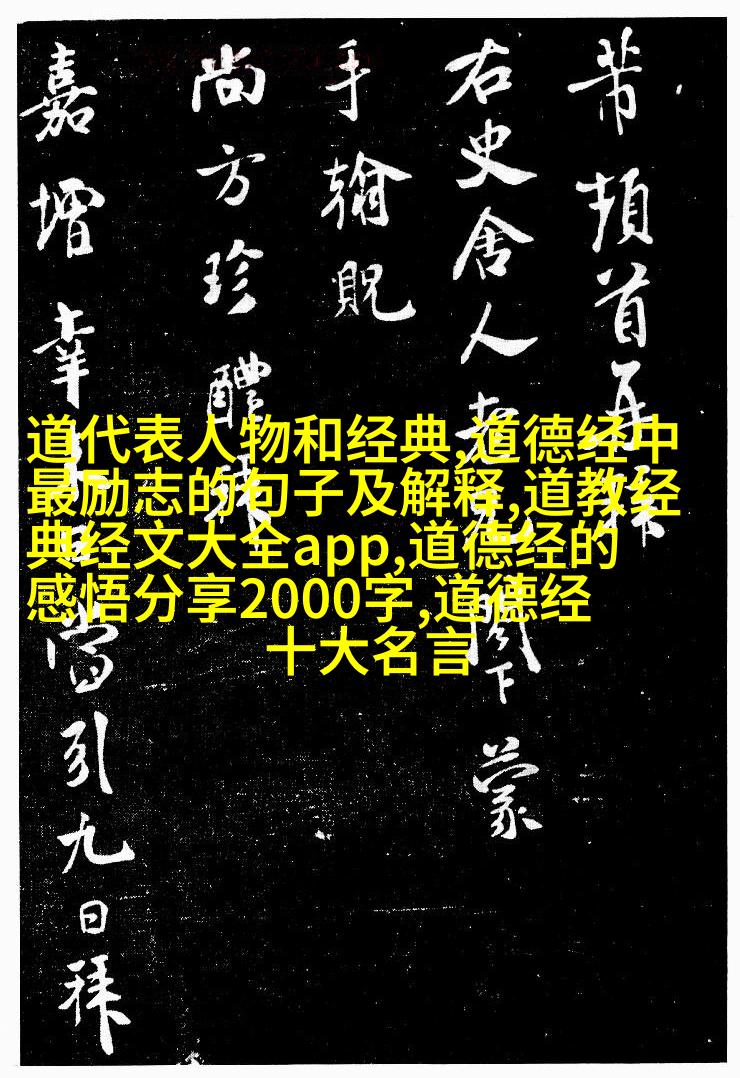 芾頓首再拜
右史舍人老兄閣下蒙
手翰貺
尚方珍醴拜
嘉增幸當引九日拜
道代表人物和经典,道德经中
最励志的句子及解释,道教经
典经文大全app,道德经的
感悟分享2000字,道德经
十大名言